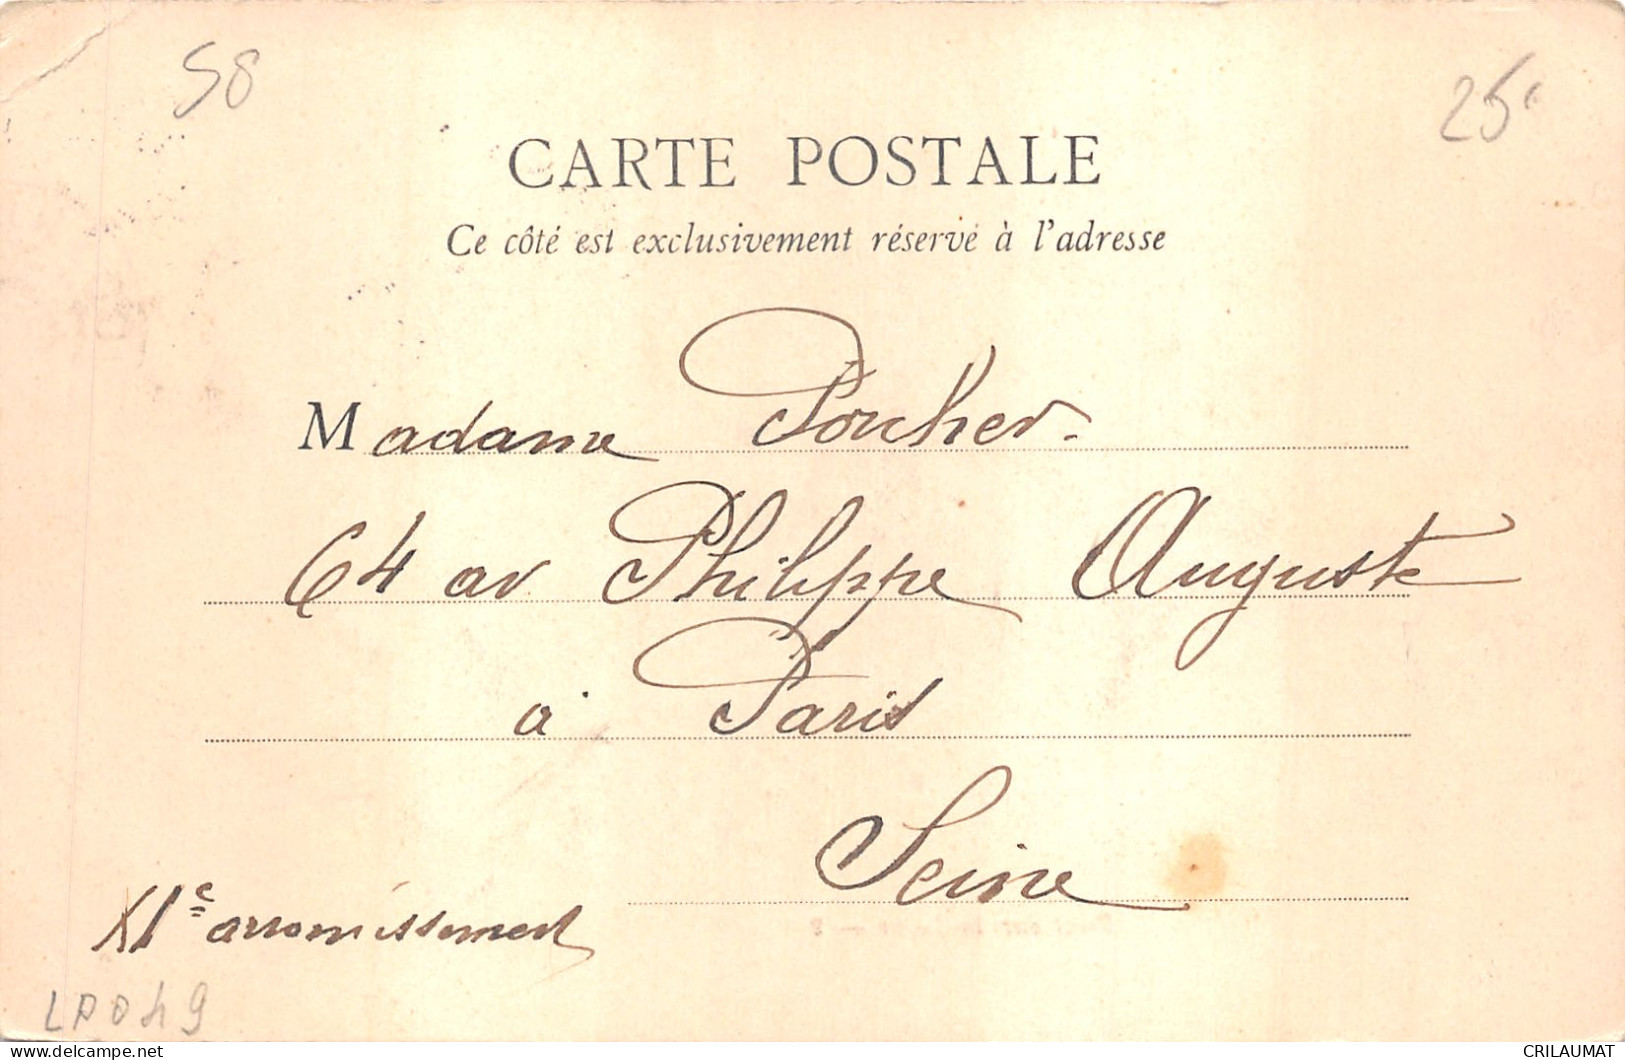 58
25c
CARTE POSTALE
Ce côté est exclusivement réservé à l'adresse
Madame Poucher.
64 av Philippe Auguste
à Paris
Seine
XIe arrondissement
LP049
delcampe.net
CRILAUMAT